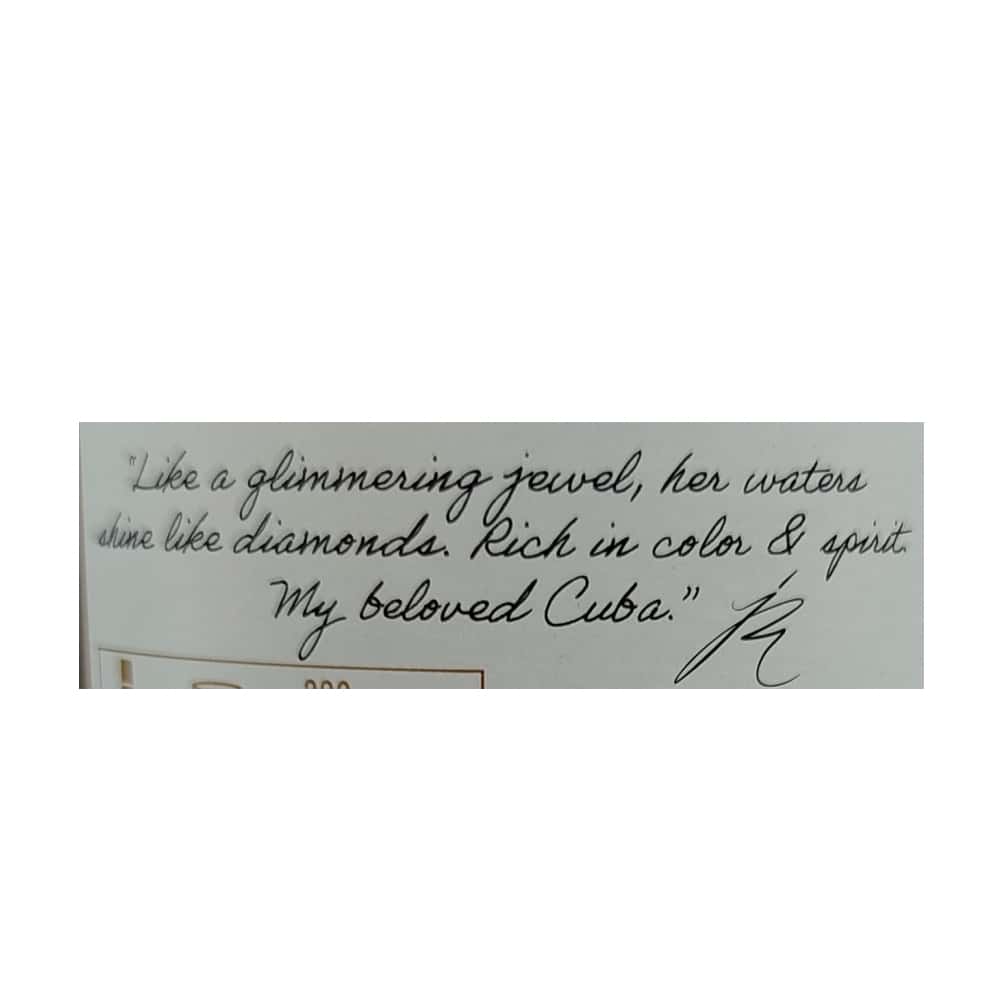 "Like a glimmering jewel, her waters
shine like diamonds. Rich in color & spirit.
My beloved Cuba."